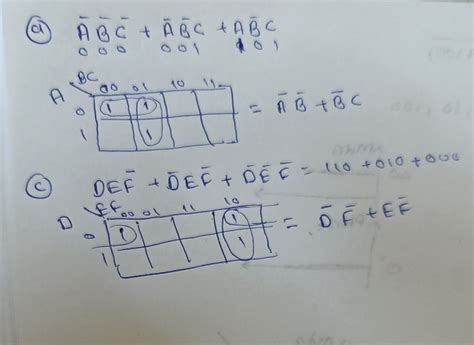 a) A̅ B̅ C̅ + A̅ B̅ C + A B̅ C
0 0 0 0 0 1 1 0 1
BC
A 00 01 10 11
0 1 1 = A̅ B̅ + B̅ C
1 1
c) D E F̅ + D̅ E F̅ + D̅ E̅ F̅ = 110 + 010 + 000
EF
D 00 01 11 10
0 1 1 = D̅ F̅ + E F̅
1 1